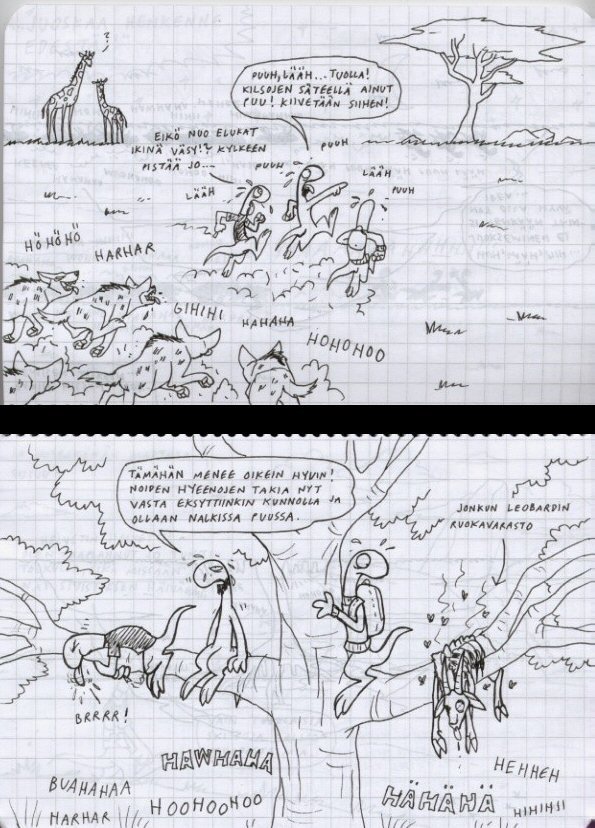 ?
PUUH, LÄÄH... TUOLLA!
KILSOJEN SÄTEELLÄ AINUT
PUU! KIIVETÄÄN SIIHEN!
EIKÖ NUO ELUKAT
IKINÄ VÄSY!? KYLKEEN
PISTÄÄ JO...
PUUH
PUUH
LÄÄH
LÄÄH
PUUH
HÖHÖHÖ
HARHAR
GIHIHI
HAHAHA
HOHOHOO
TÄMÄHÄN MENEE OIKEIN HYVIN!
NOIDEN HYEENOJEN TAKIA NYT
VASTA EKSYTTIINKIN KUNNOLLA JA
OLLAAN NALKISSA PUUSSA.
JONKUN LEOBARDIN
RUOKAVARASTO
BRRRR!
HAWHAHA
BUAHAHAA
HARHAR
HOOHOOHOO
HÄHÄHÄ
HEHHEH
HIHIHII